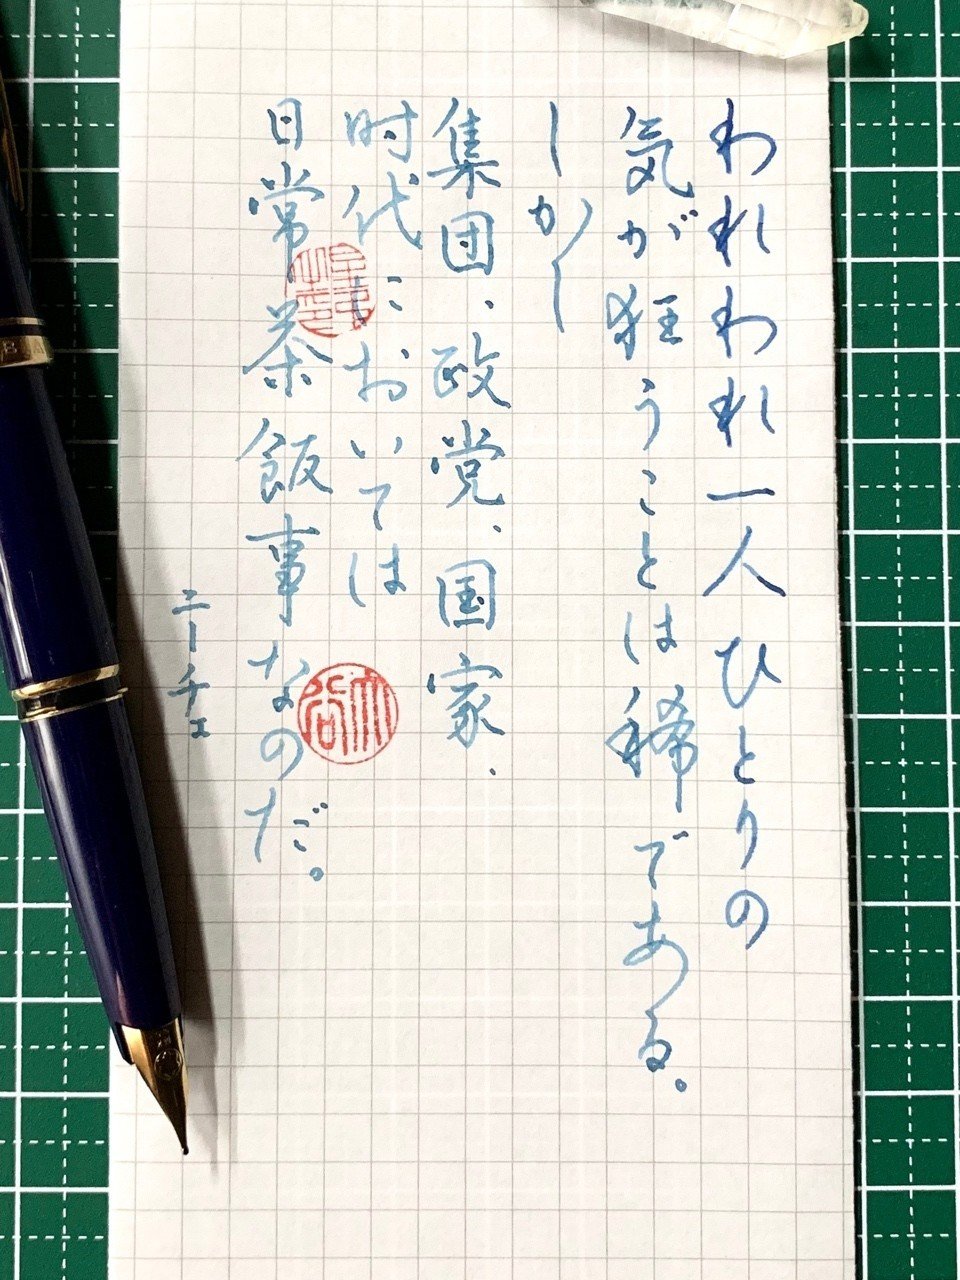 われわれ一人ひとりの
気が狂うことは稀である。
しかし
集団、政党、国家、
时代においては
日常茶飯事なのだ。
ニーチェ